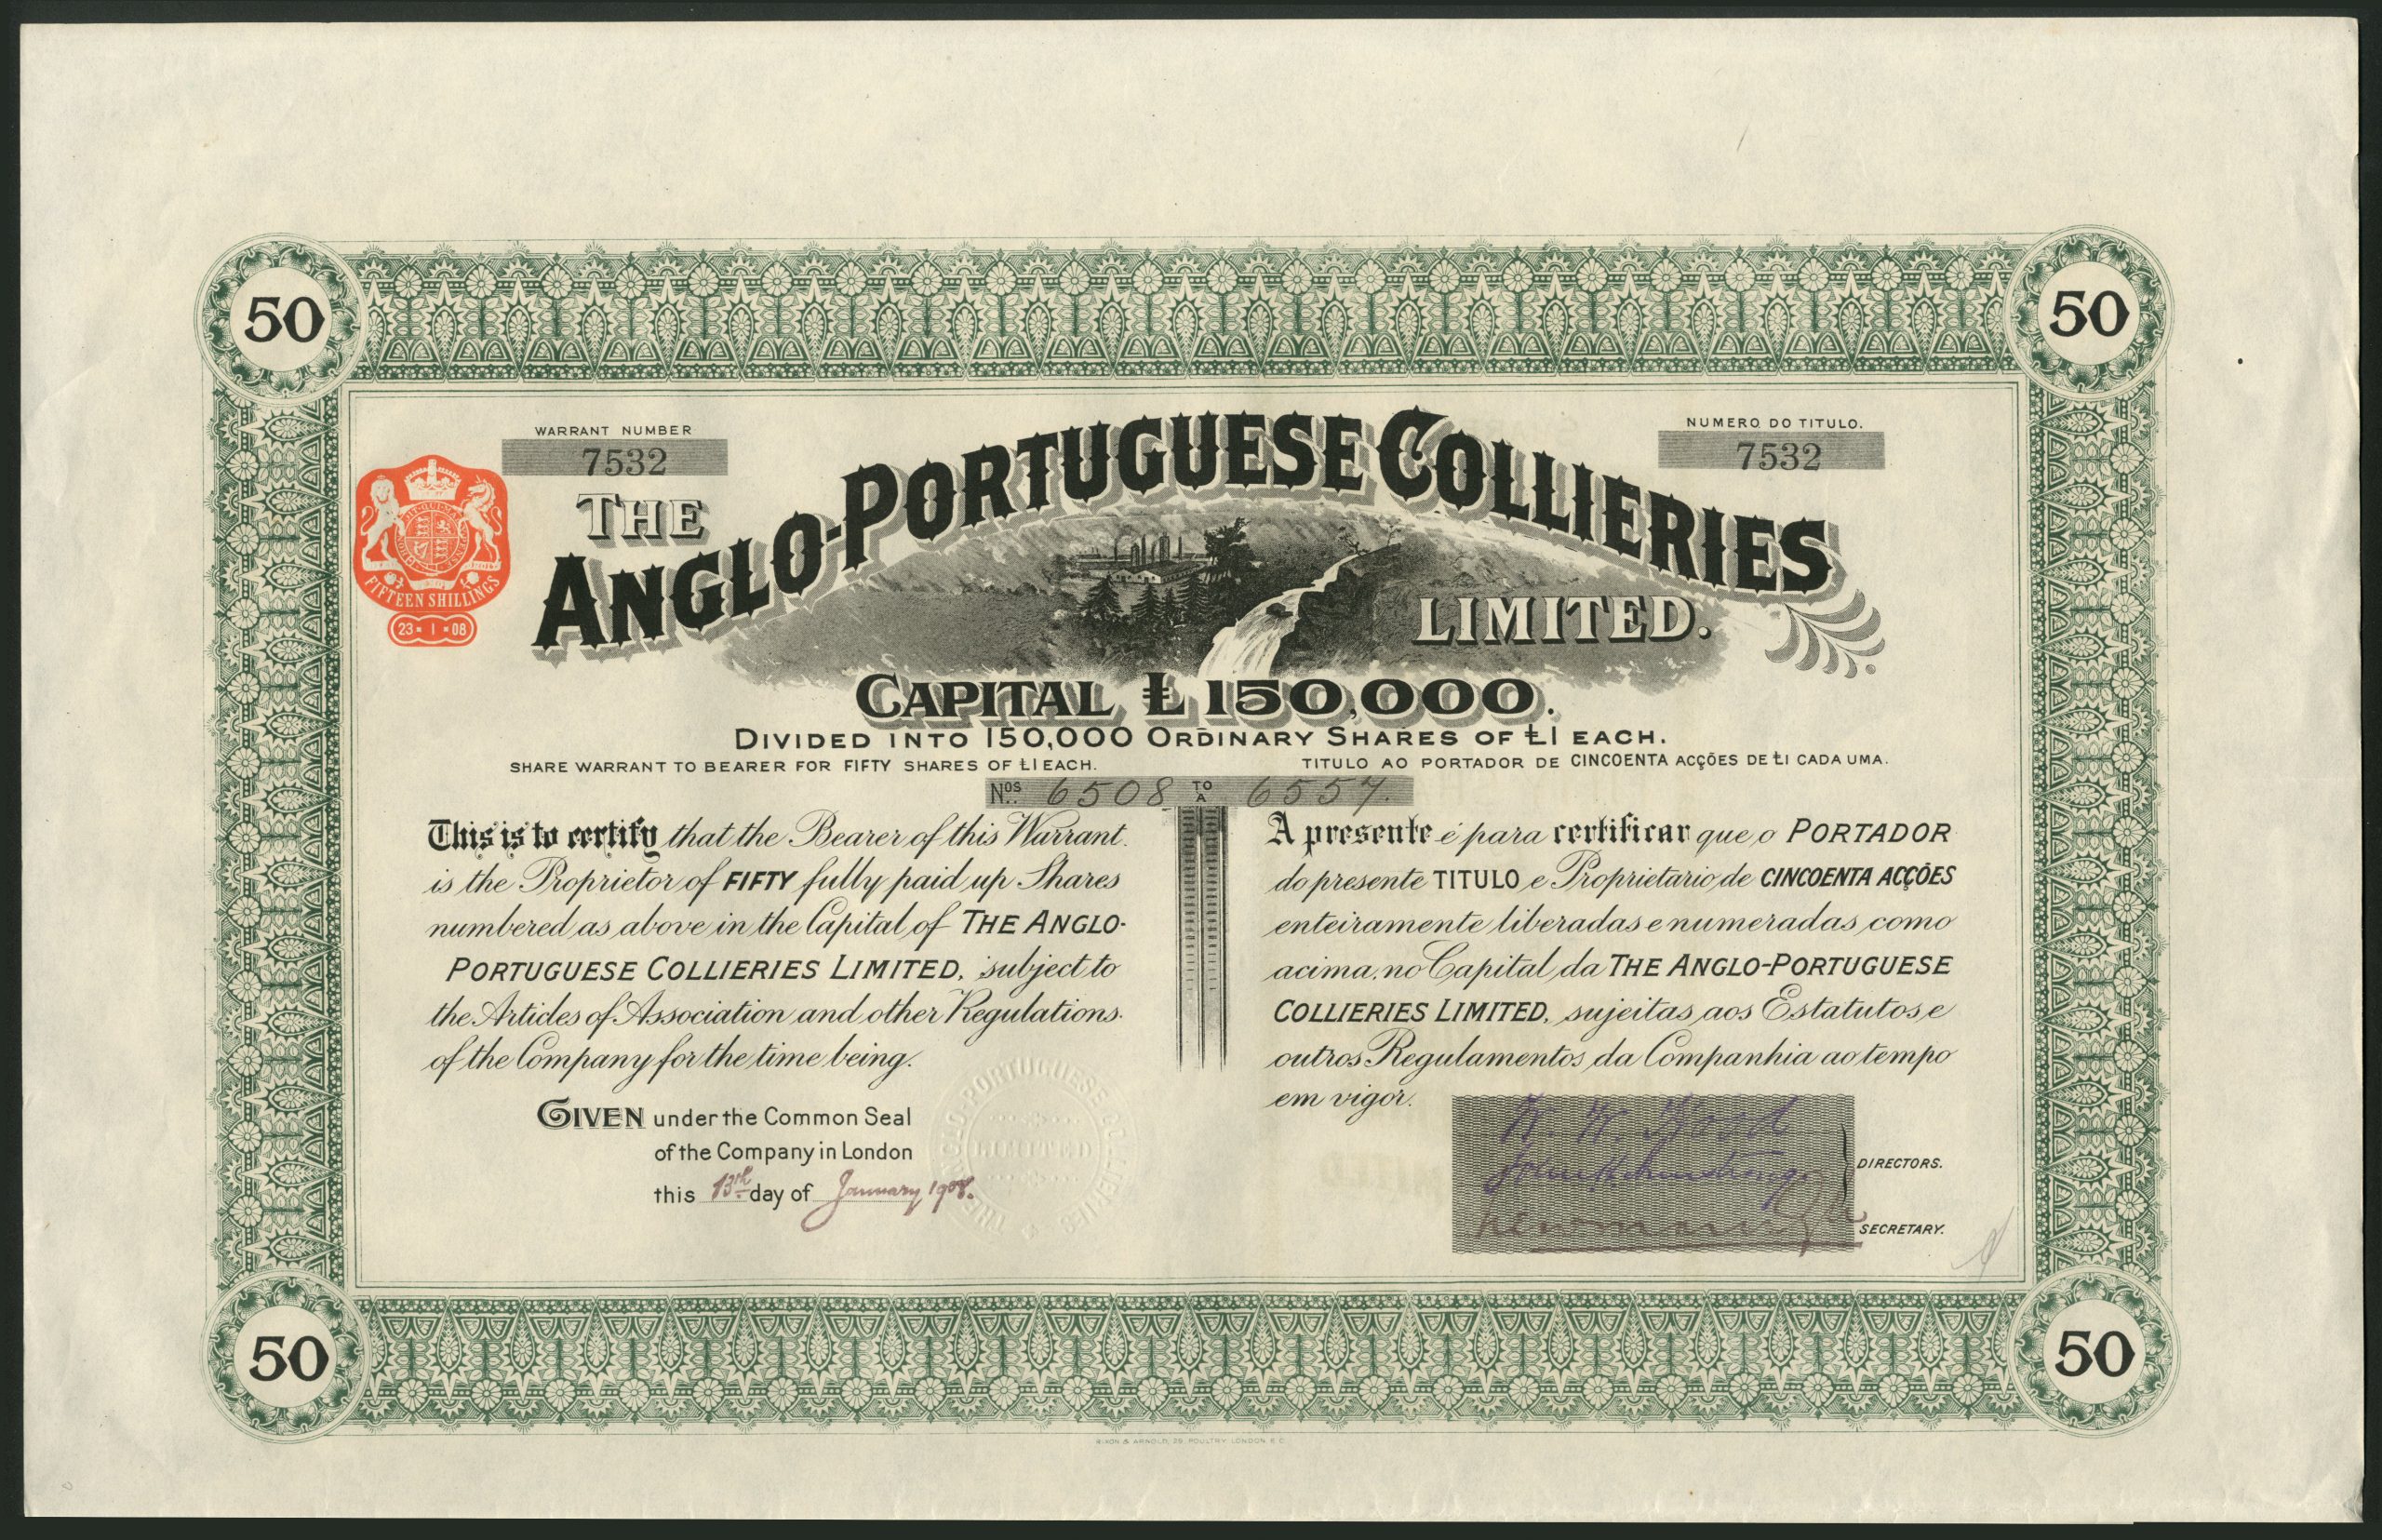 50
50
WARRANT NUMBER
7532
NUMERO DO TITULO.
7532
FIFTEEN SHILLINGS
23 · 1 · 08
THE
ANGLO-PORTUGUESE COLLIERIES
LIMITED.
CAPITAL £150,000.
DIVIDED INTO 150,000 ORDINARY SHARES OF £1 EACH.
SHARE WARRANT TO BEARER FOR FIFTY SHARES OF £1 EACH.
TITULO AO PORTADOR DE CINCOENTA ACÇÕES DE £1 CADA UMA.
Nos. 6508 TO A 6557.
This is to certify that the Bearer of this Warrant
is the Proprietor of FIFTY fully paid up Shares
numbered as above in the Capital of THE ANGLO-
PORTUGUESE COLLIERIES LIMITED, subject to
the Articles of Association and other Regulations
of the Company for the time being.
GIVEN under the Common Seal
of the Company in London
this 13th day of January 1908.
THE ANGLO-PORTUGUESE COLLIERIES
LIMITED
A presente é para certificar que o PORTADOR
do presente TITULO e Proprietario de CINCOENTA ACÇÕES
enteiramente liberadas e numeradas como
acima, no Capital da THE ANGLO-PORTUGUESE
COLLIERIES LIMITED, sujeitas aos Estatutos e
outros Regulamentos da Companhia ao tempo
em vigor.
DIRECTORS.
SECRETARY.
50
50
& ARNOLD, 29, POULTRY LONDON, E.C.